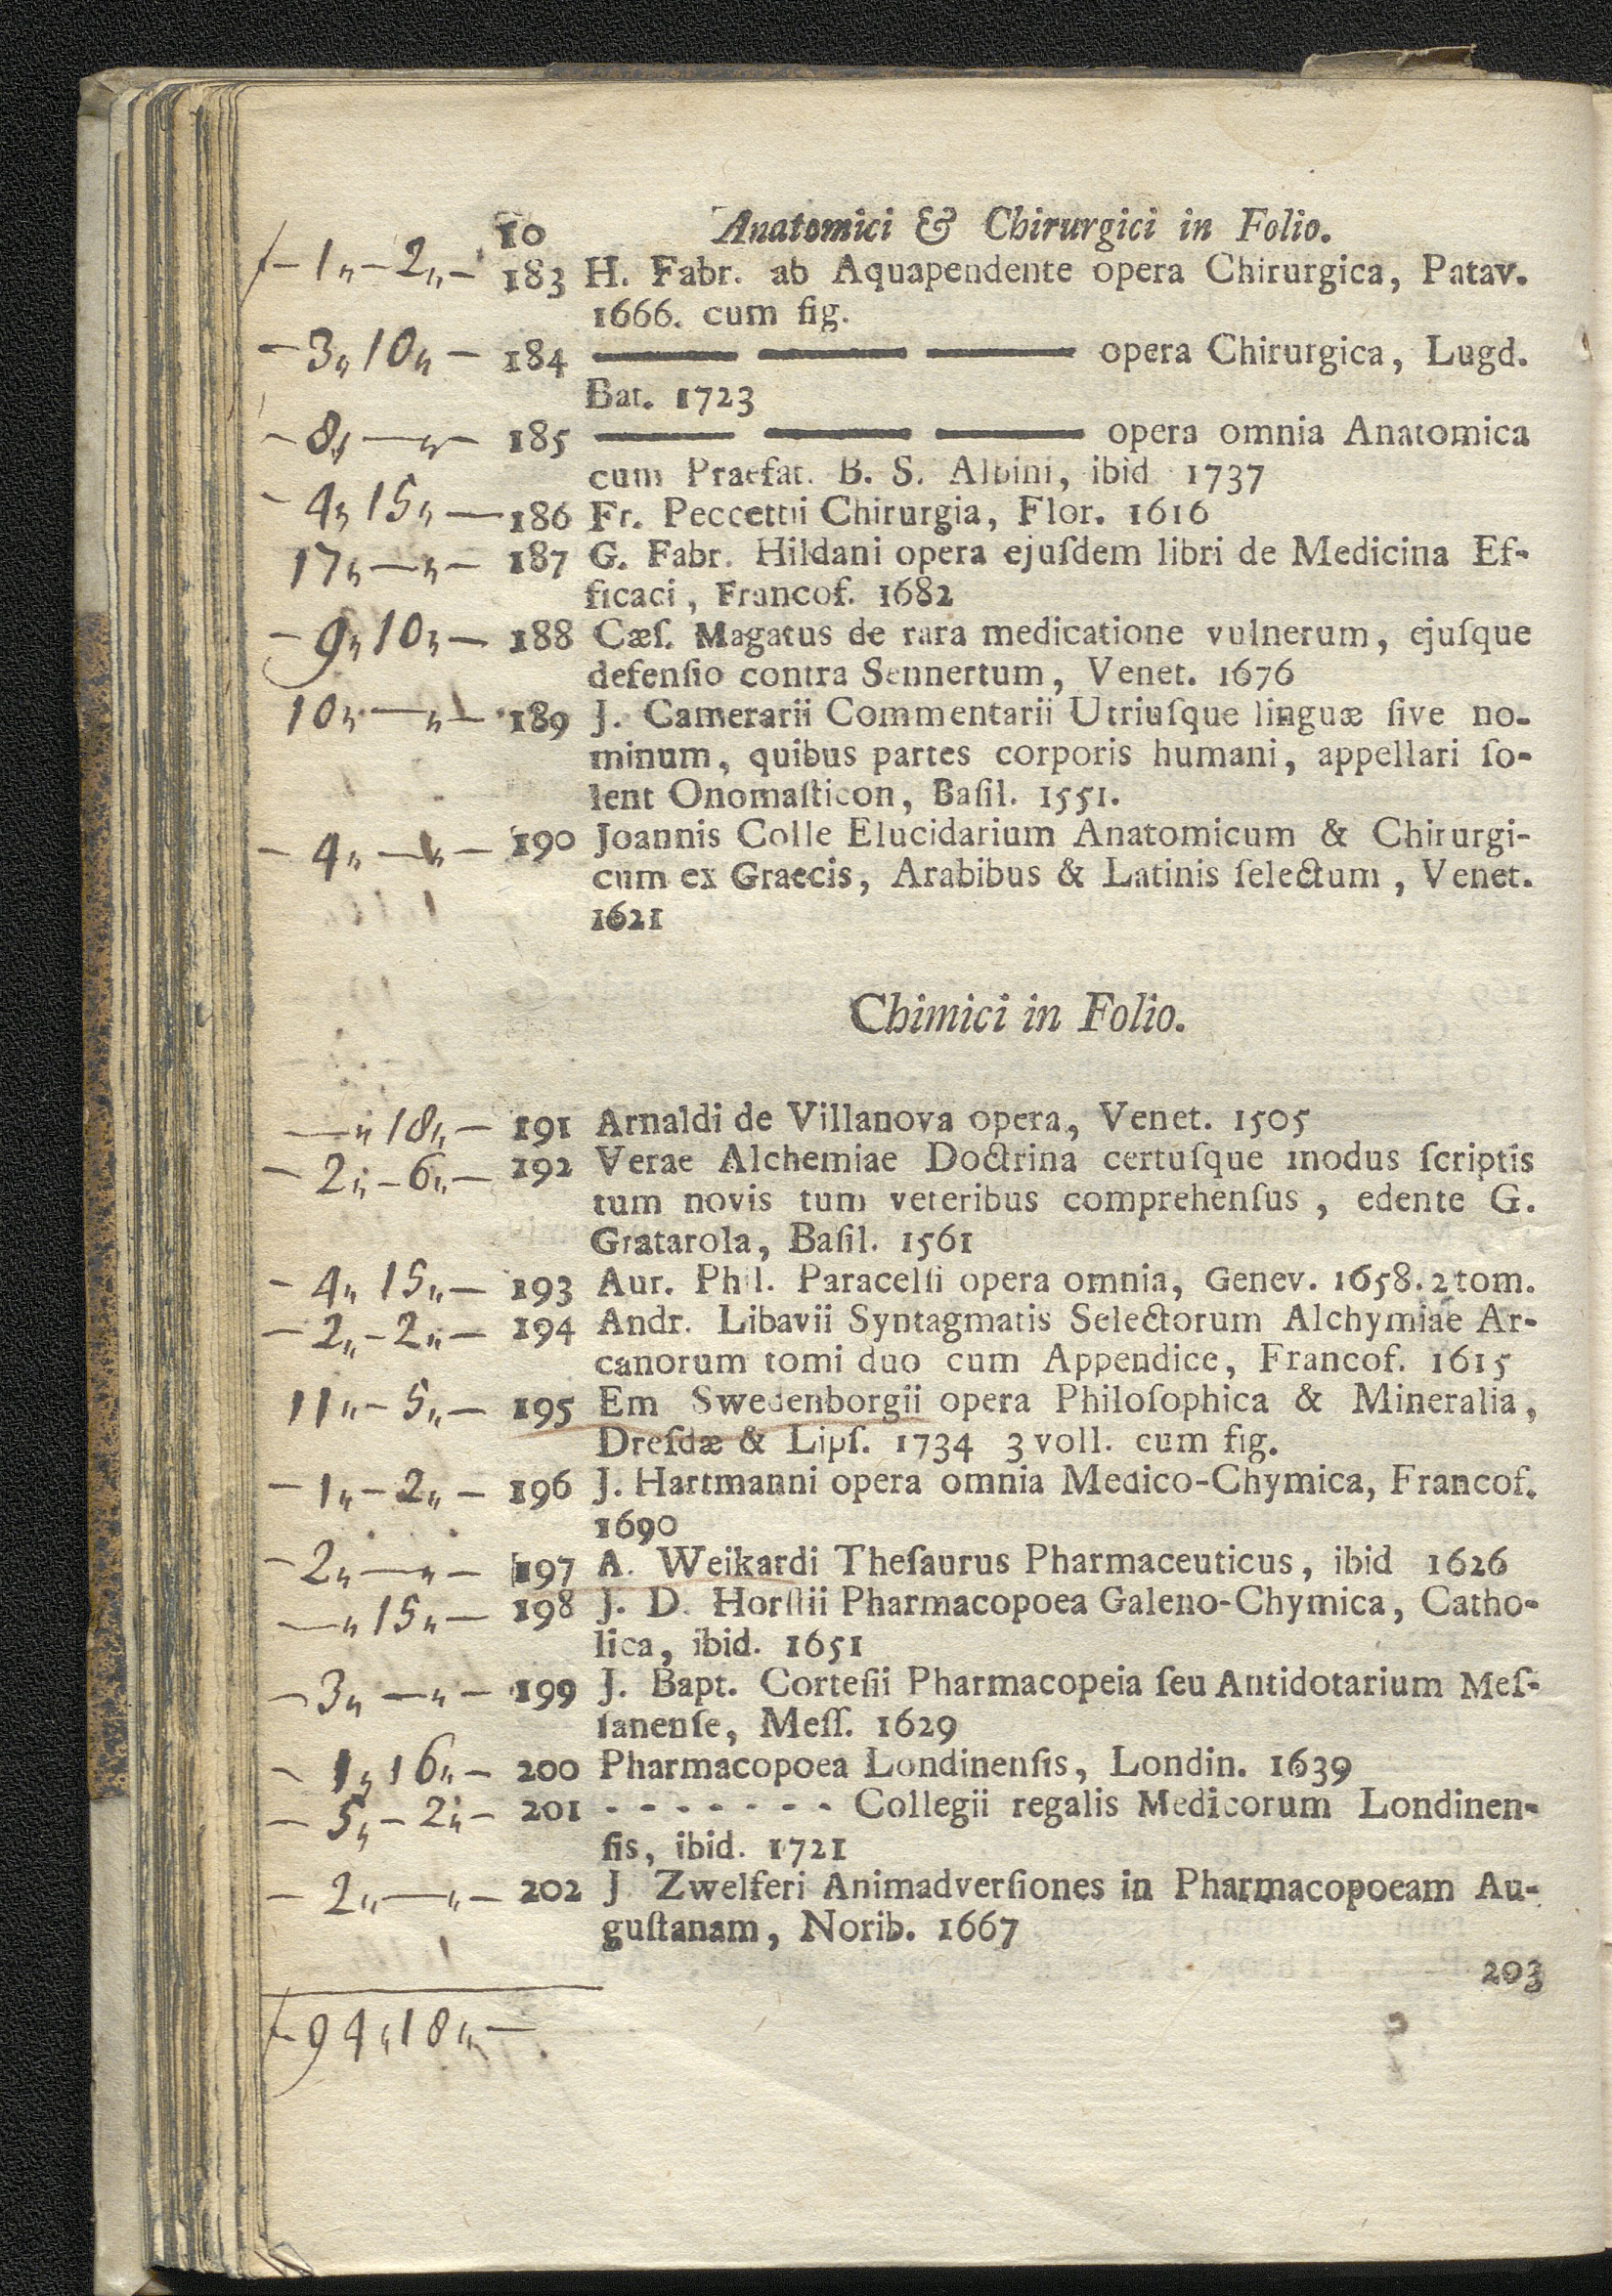 10 Anatomici & Chirurgici in Folio.
f - 1„ - 2„ - 183 H. Fabr. ab Aquapendente opera Chirurgica, Patav.
1666. cum fig.
- 3„ 10„ - 184 ——— ——— ——— opera Chirurgica, Lugd.
Bat. 1723
- 8„ — „ - 185 ——— ——— ——— opera omnia Anatomica
cum Praefat. B. S. Albini, ibid 1737
- 4„ 15„ - 186 Fr. Peccettii Chirurgia, Flor. 1616
17„ — „ - 187 G. Fabr. Hildani opera ejuſdem libri de Medicina Ef-
ficaci, Francof. 1682
- 9„ 10„ - 188 Cæſ. Magatus de rara medicatione vulnerum, ejuſque
defenſio contra Sennertum, Venet. 1676
10„ — „ - 189 J. Camerarii Commentarii Utriuſque linguæ ſive no-
minum, quibus partes corporis humani, appellari ſo-
lent Onomaſticon, Baſil. 1551.
- 4„ — „ - 190 Joannis Colle Elucidarium Anatomicum & Chirurgi-
cum ex Graecis, Arabibus & Latinis ſelectum, Venet.
1621
Chimici in Folio.
— „ 18„ - 191 Arnaldi de Villanova opera, Venet. 1505
- 2„ - 6„ - 192 Verae Alchemiae Doctrina certuſque modus ſcriptis
tum novis tum veteribus comprehenſus, edente G.
Gratarola, Baſil. 1561
- 4„ 15„ - 193 Aur. Phil. Paracelſi opera omnia, Genev. 1658. 2 tom.
- 2„ - 2„ - 194 Andr. Libavii Syntagmatis Selectorum Alchymiae Ar-
canorum tomi duo cum Appendice, Francof. 1615
11„ - 5„ - 195 Em Swedenborgii opera Philoſophica & Mineralia,
Dreſdæ & Lipſ. 1734 3 voll. cum fig.
- 1„ - 2„ - 196 J. Hartmanni opera omnia Medico-Chymica, Francof.
1690
- 2„ — „ - 197 A. Weikardi Theſaurus Pharmaceuticus, ibid 1626
— „ 15„ - 198 J. D. Horſtii Pharmacopoea Galeno-Chymica, Catho-
lica, ibid. 1651
- 3„ — „ - 199 J. Bapt. Corteſii Pharmacopeia ſeu Antidotarium Meſ-
ſanenſe, Meſſ. 1629
- 1„ 16„ - 200 Pharmacopoea Londinenſis, Londin. 1639
- 5„ - 2„ - 201 - - - - - - - Collegii regalis Medicorum Londinen-
ſis, ibid. 1721
- 2„ — „ - 202 J Zwelferi Animadverſiones in Pharmacopoeam Au-
guſtanam, Norib. 1667
203
f 94„ 18„ -